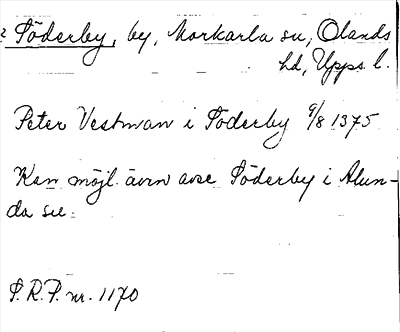 ? Söderby, by, Morkarla sn, Olands
hd, Upps. l.
Peter Vestman i Söderby 9/8 1375
Kan möjl. även avse Söderby i Alun-
da sn.
S.R.P. nr. 1170